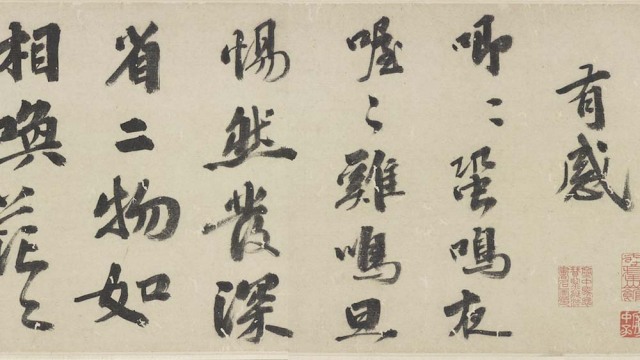 有感
唧〻蛩鳴夜
喔〻雞鳴旦
惕然發深
省二物如
相喚茫〻